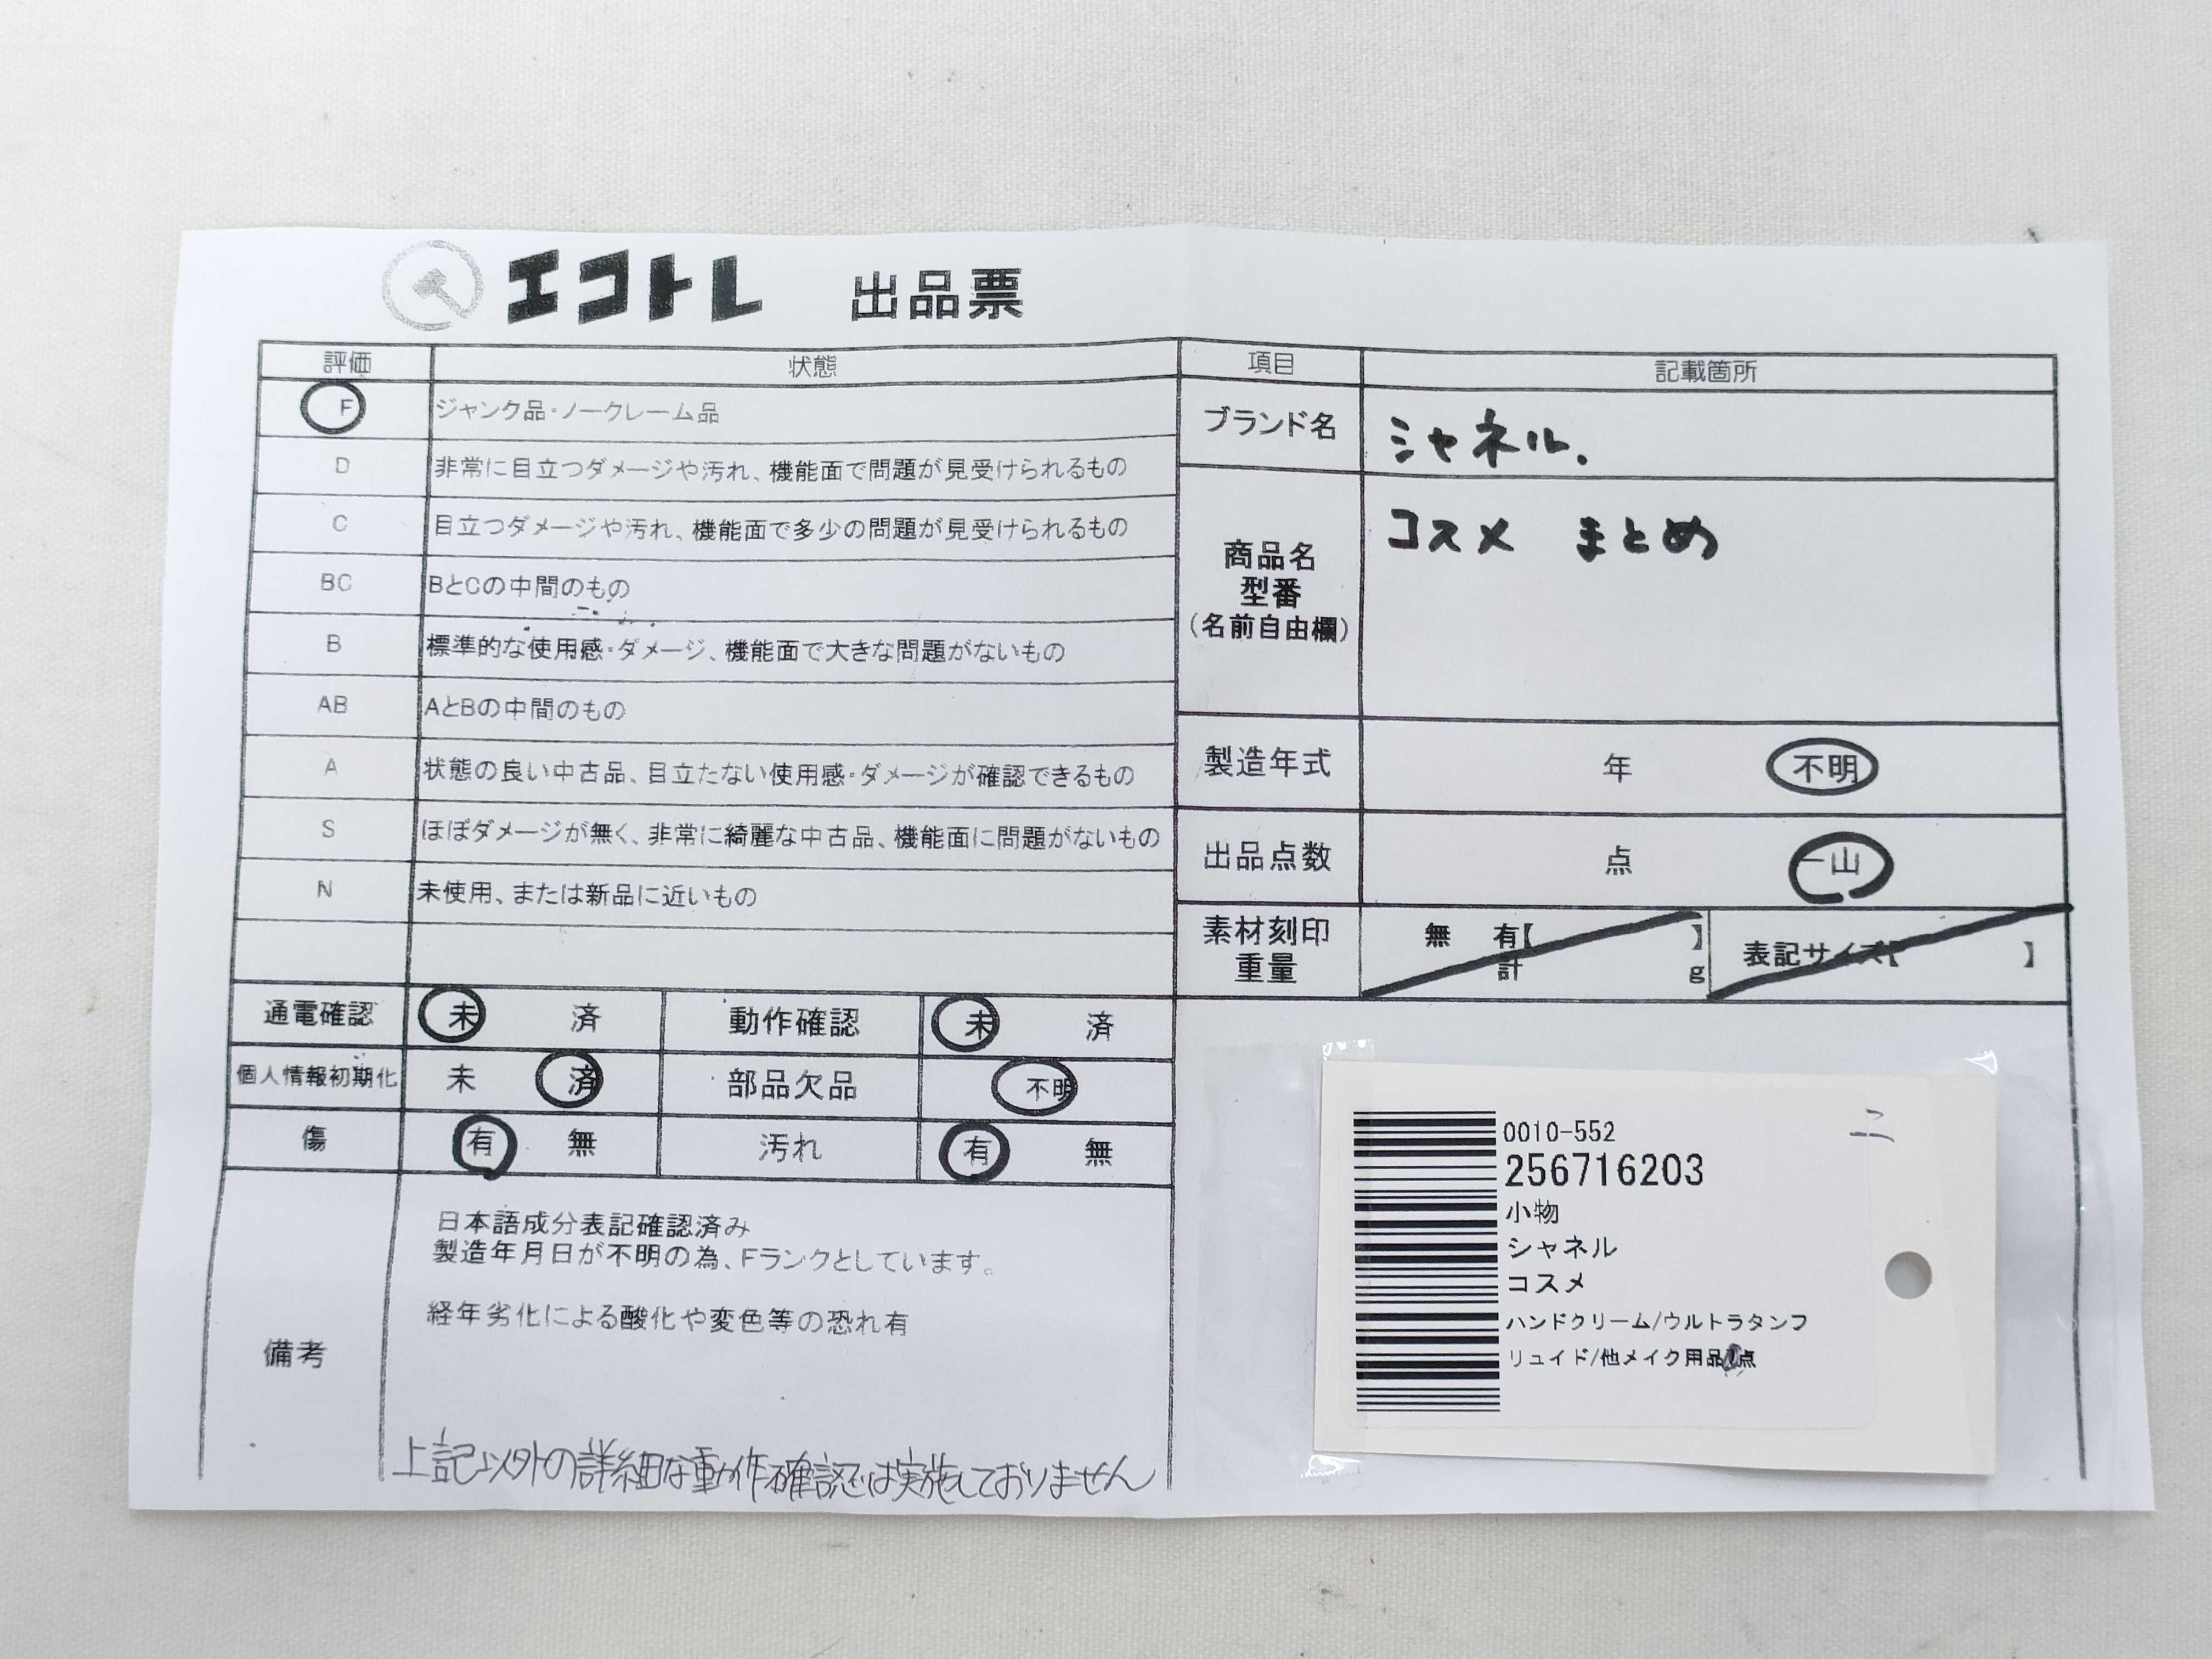 エコトレ 出品票
評価 状態
F ジャンク品・ノークレーム品
D 非常に目立つダメージや汚れ、機能面で問題が見受けられるもの
C 目立つダメージや汚れ、機能面で多少の問題が見受けられるもの
BC BとCの中間のもの
B 標準的な使用感・ダメージ、機能面で大きな問題がないもの
AB AとBの中間のもの
A 状態の良い中古品、目立たない使用感・ダメージが確認できるもの
S ほぼダメージが無く、非常に綺麗な中古品、機能面に問題がないもの
N 未使用、または新品に近いもの
通電確認 未 済 動作確認 未 済
個人情報初期化 未 済 部品欠品 不明
傷 有 無 汚れ 有 無
備考
日本語成分表記確認済み
製造年月日が不明の為、Fランクとしています。
経年劣化による酸化や変色等の恐れ有
上記以外の詳細な動作確認は実施しておりません
項目 記載箇所
ブランド名 シャネル.
商品名
型番
(名前自由欄)
コスメ まとめ
製造年式 年 不明
出品点数 点 一山
素材刻印
重量
無 有【 】
計 g
表記サイズ【 】
0010-552
256716203
小物
シャネル
コスメ
ハンドクリーム/ウルトラタンフ
リュイド/他メイク用品点